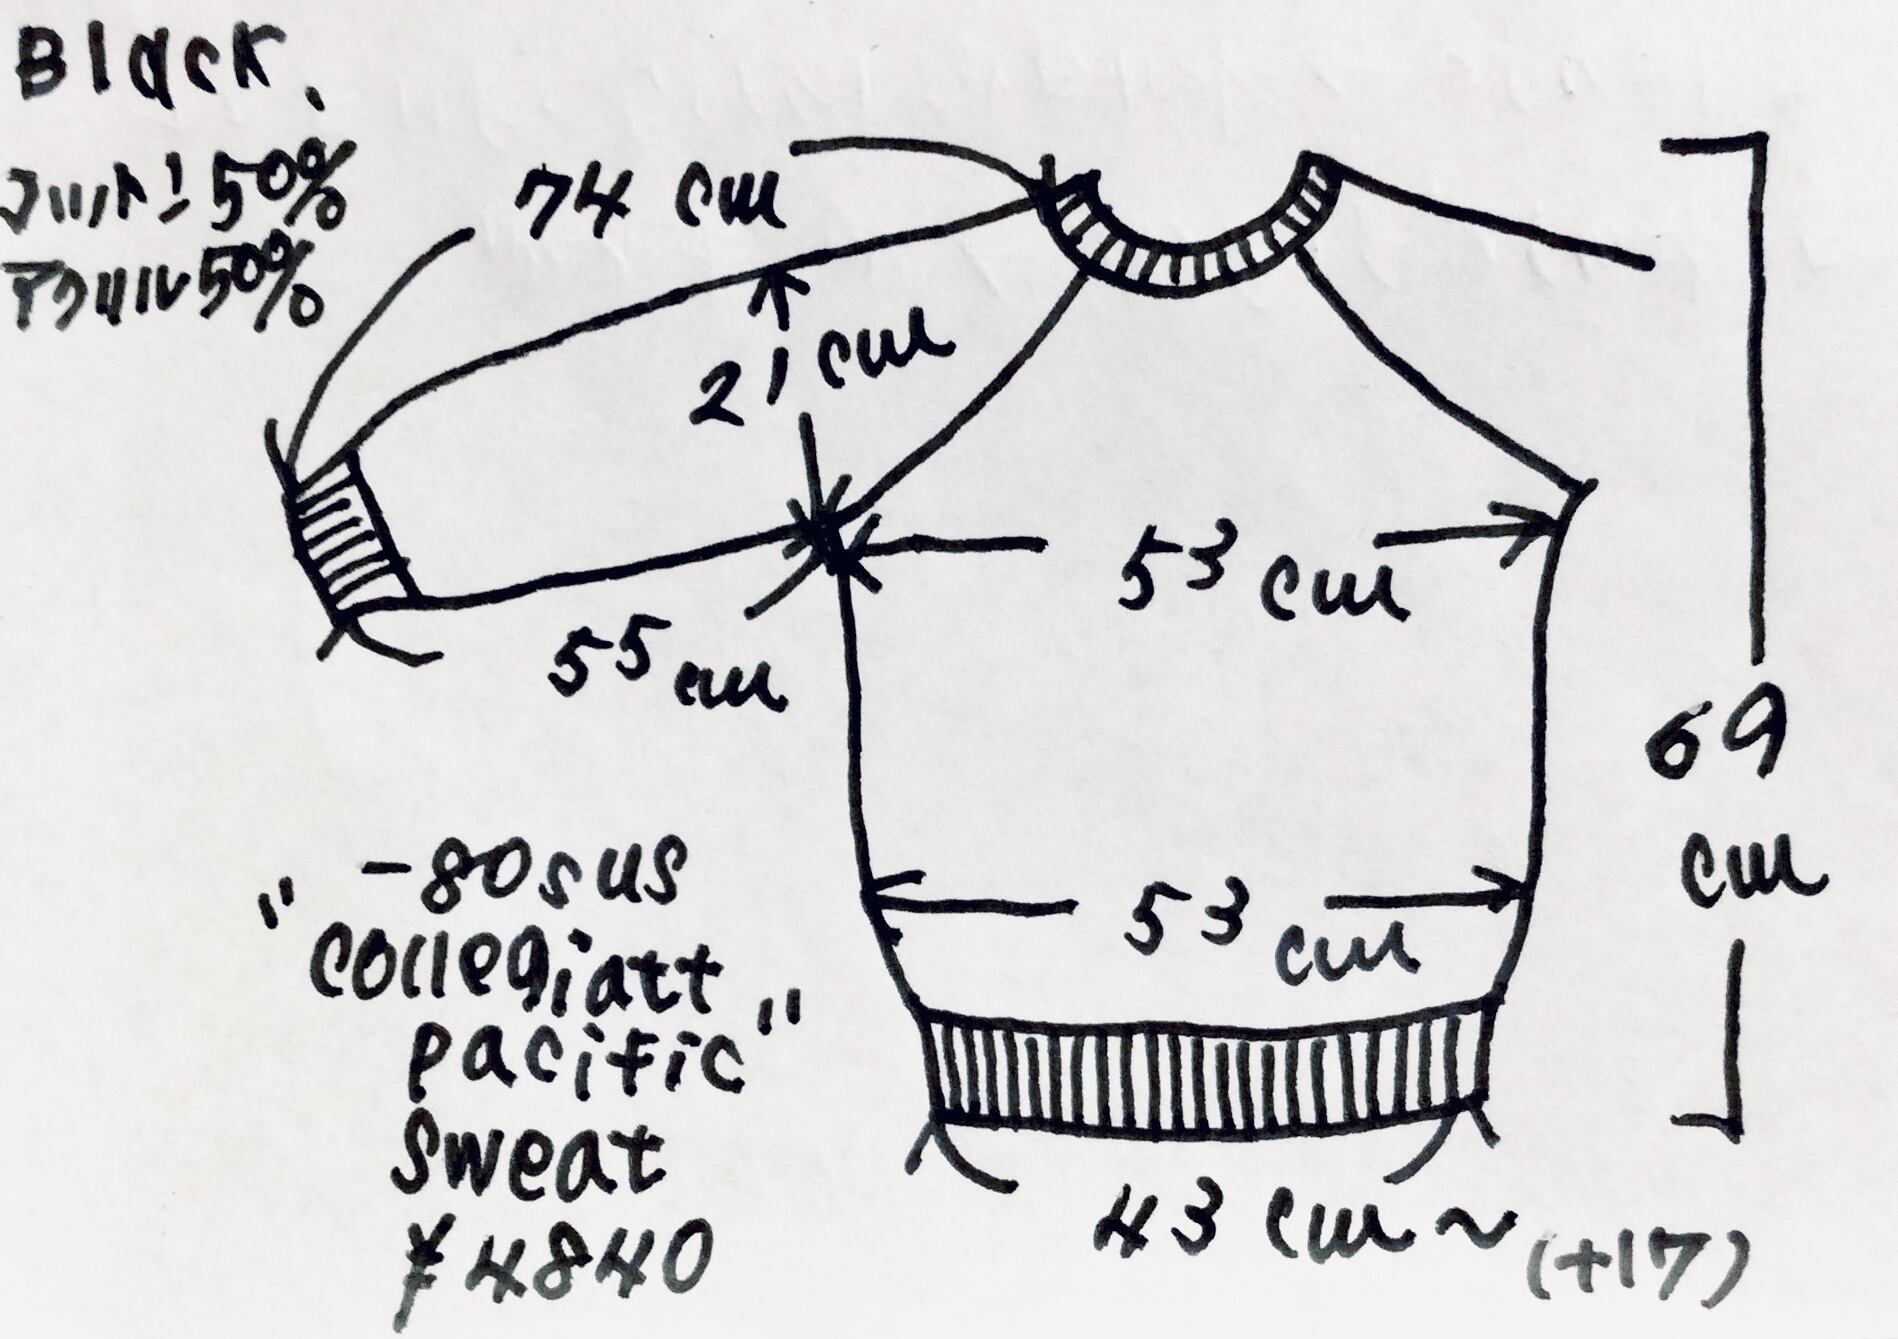 Black.
コットン50%
アクリル50%
74 cm
21 cm
53 cm
55 cm
69
cm
53 cm
"-80s us
collegiatt
pacific"
sweat
¥4840
43 cm~(+17)